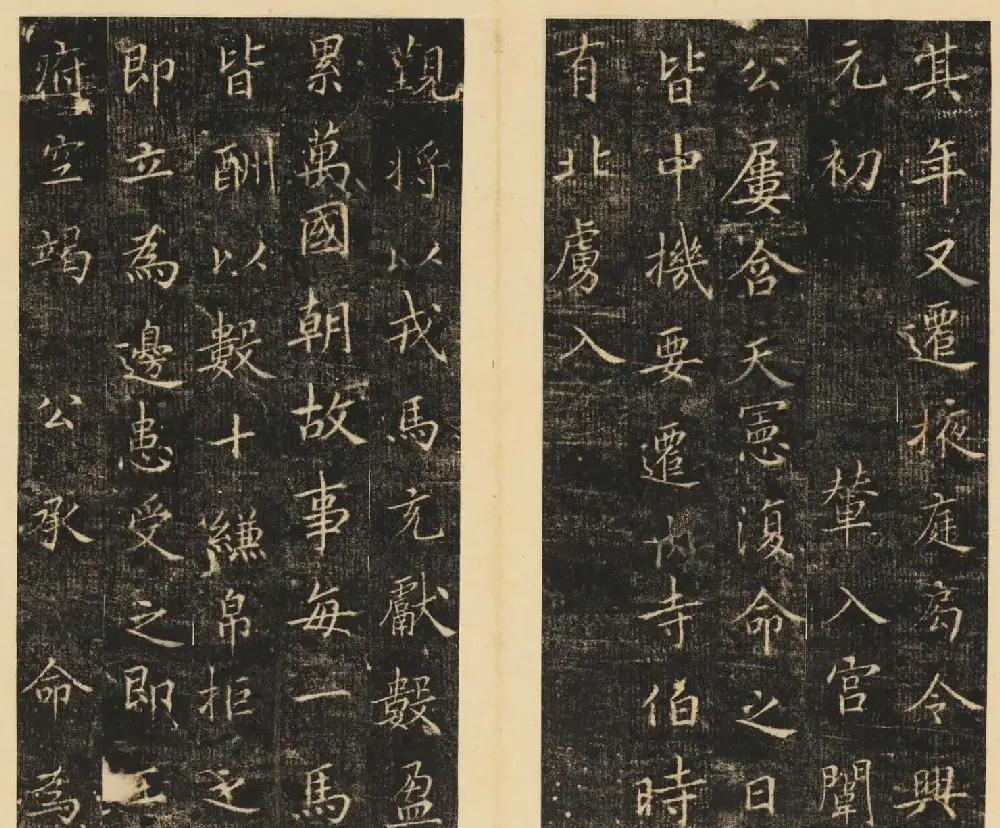 其年又遷掖庭局令興
元初輦入宮闈
公屢含天憲復命之日
皆中機要遷內寺伯時
有北虜入
覲將以戎馬充獻數盈
累萬國朝故事每一馬
皆酬以數十縑帛拒之
即立為邊患受之即王
府空竭公承命為